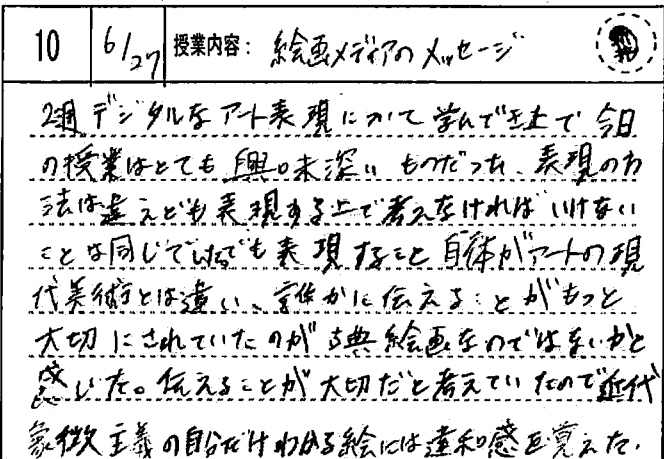 10 6/27 授業内容: 絵画メディアのメッセージ
2週デジタルなアート表現について学んできた上で今日
の授業はとても興味深いものだった、表現の方
法は違えども表現する上で考えなければいけない
ことは同じでした。でも表現すること自体がアートの現
代美術とは違い、誰かに伝えることがもっと
大切にされていたのが古典絵画なのではないかと
感じた。伝えることが大切だと考えていたので近代
象徴主義の自分だけわかる絵には違和感を覚えた.